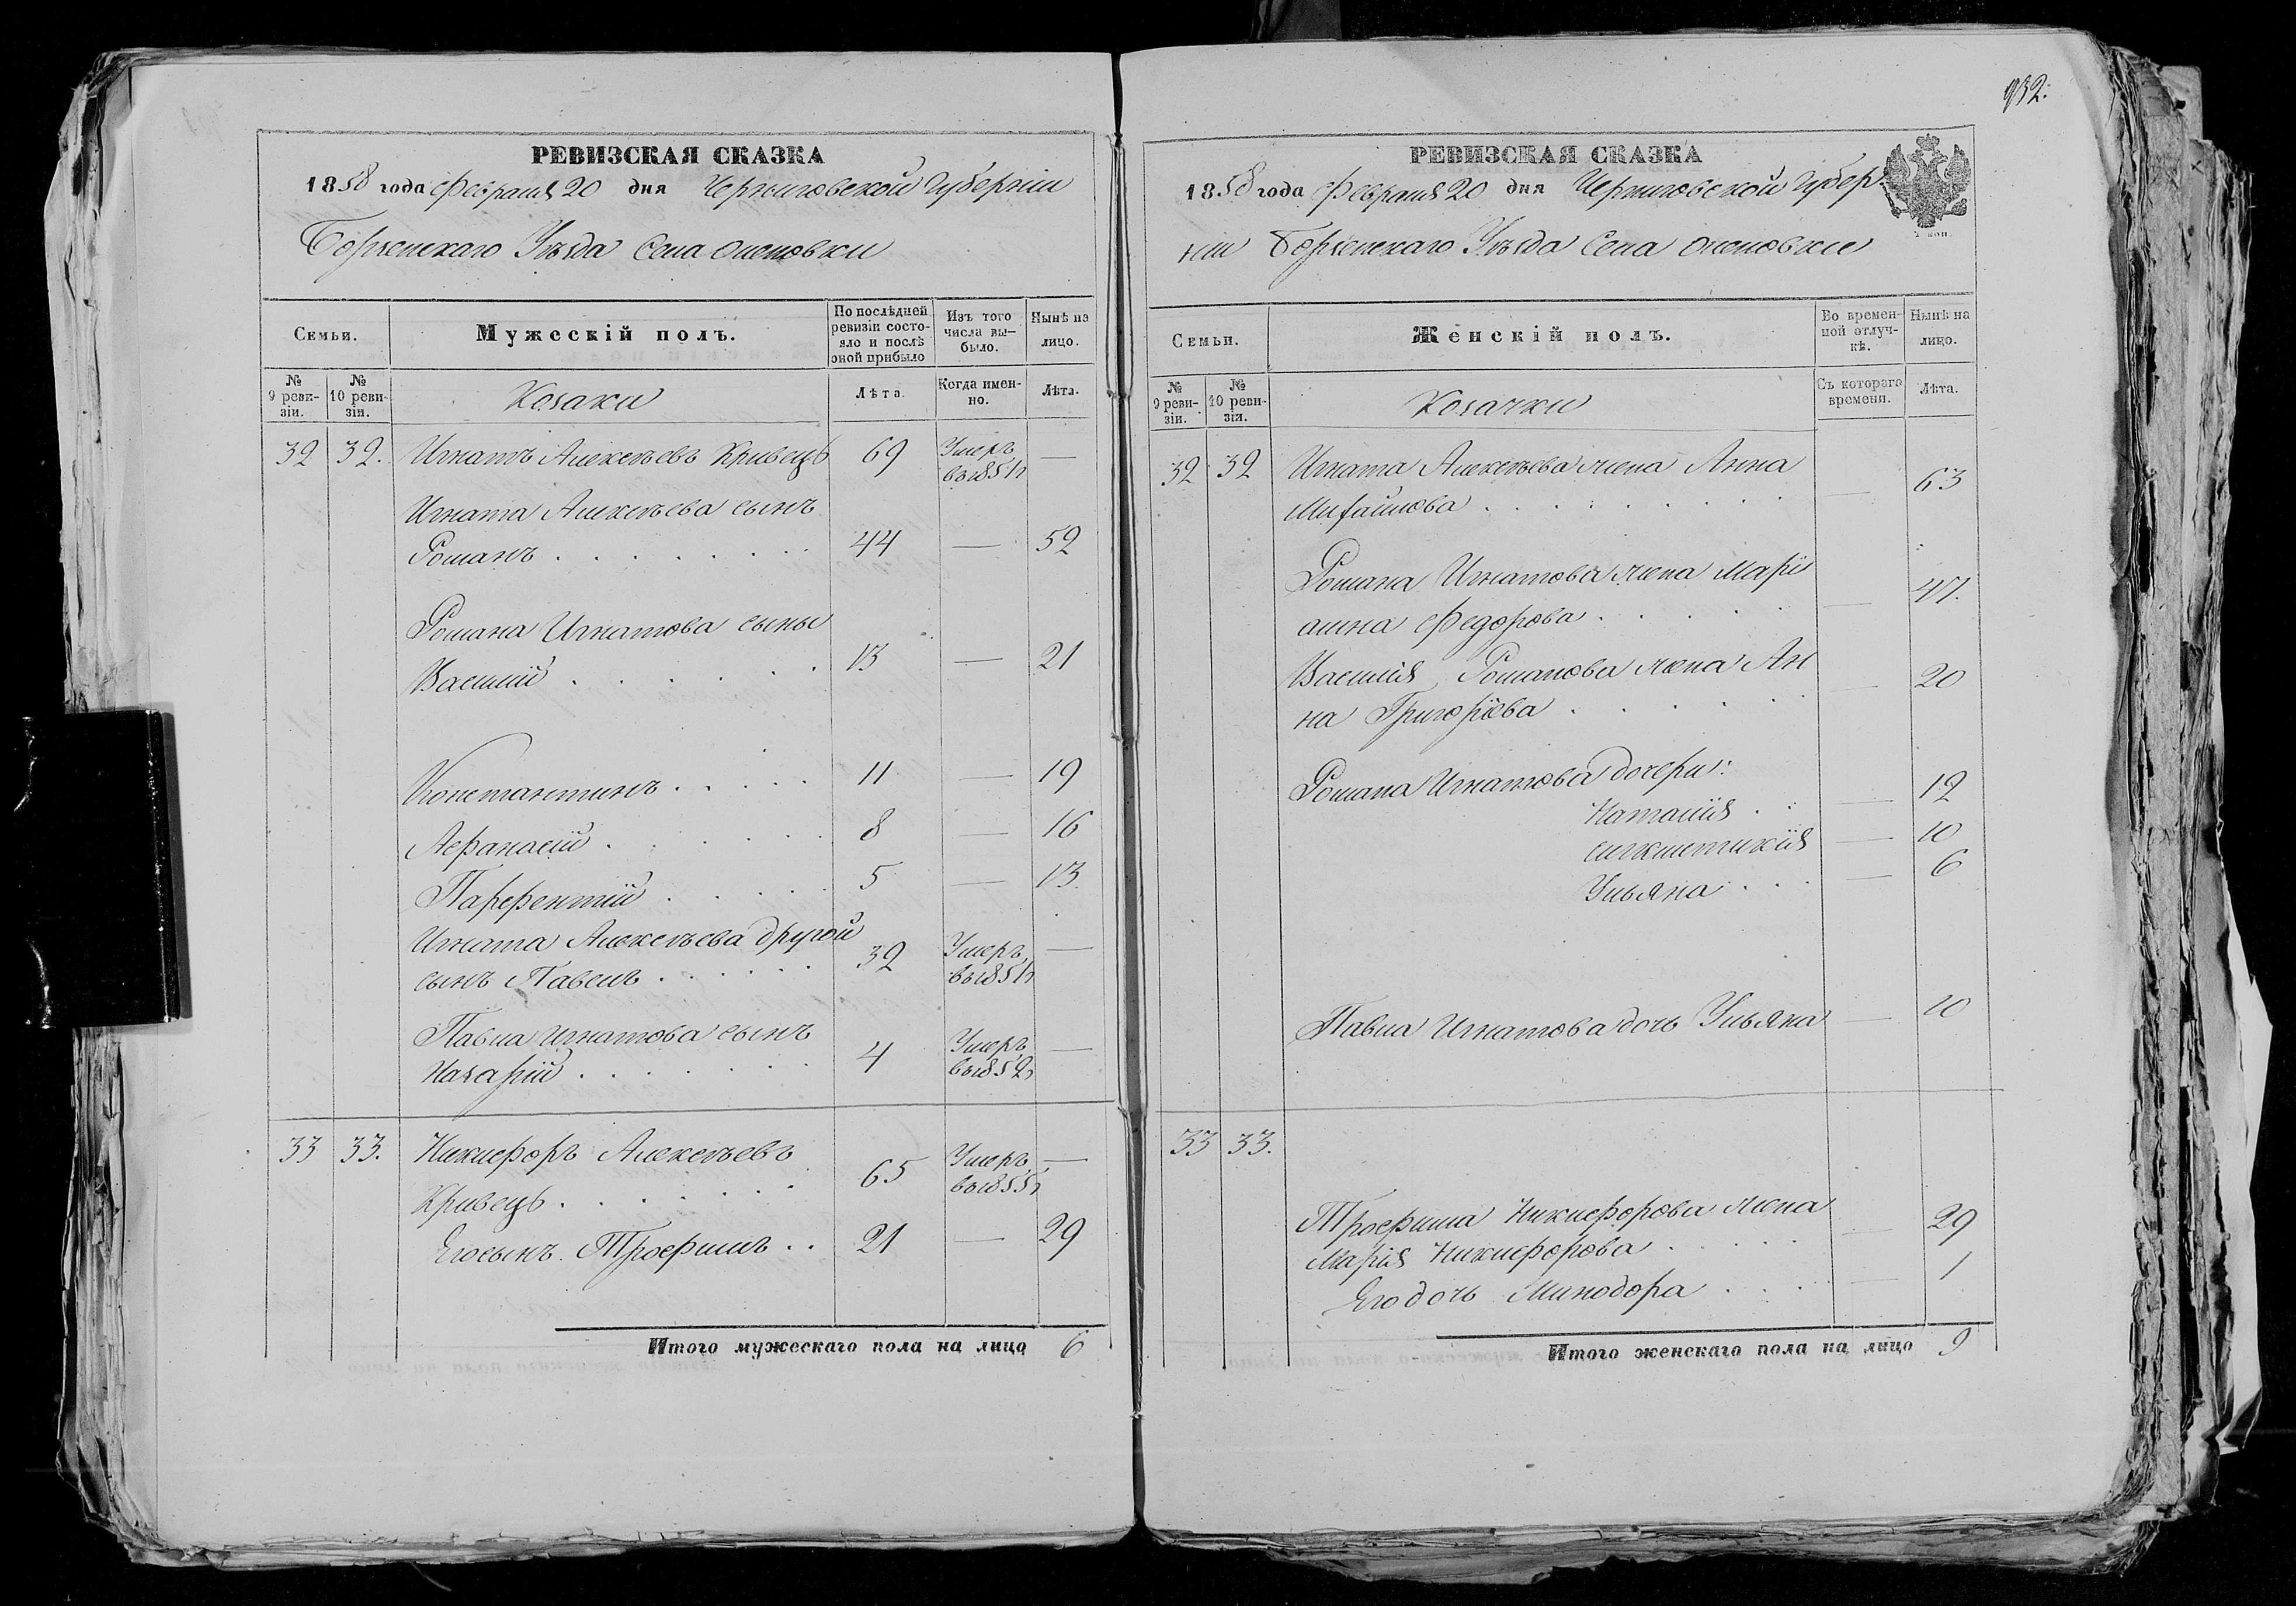 932.
РЕВИЗСКАЯ СКАЗКА
1858 года Февраля 20 дня Черниговской Губерніи
Борзенскаго Уѣзда Села
Семьи.
Мужескій полъ.
По послѣдней ревизіи состояло и послѣ оной прибыло
Изъ того числа вы-было.
Нынѣ на лицо.
№ 9 реви-зіи.
№ 10 реви-зіи.
Козаки
Лѣта.
Когда имен-но.
Лѣта.
32 32. Игнатъ Алексѣевъ Кривецъ 69 Умеръ въ 1851 г —
Игната Алексѣева сынъ
Романъ . . . . . . . . 44 — 52
Романа Игнатова сыны
Василій . . . . . . 13 — 21
Константинъ . . . . . 11 — 19
Афанасій . . . . . . 8 — 16
Парфентій . . . . . 5 — 13
Игната Алексѣева другой
сынъ Павелъ . . . . . . 32 Умеръ въ 1851 г —
Павла Игнатова сынъ
Назарій . . . . . . . 4 Умеръ въ 1852 г —
33 33. Никифоръ Алексѣевъ
Кривецъ . . . . . . . 65 Умеръ въ 1855 г —
Его сынъ Трофимъ . . 21 — 29
Итого мужескаго пола на лицо 6
РЕВИЗСКАЯ СКАЗКА
1858 года Февраля 20 дня Черниговской Губер-
ніи Борзенскаго Уѣзда Села
Семьи.
Женскій полъ.
Во времен-ной отлуч-кѣ.
Нынѣ на лицо.
№ 9 реви-зіи.
№ 10 реви-зіи.
Козачки
Съ котораго времени.
Лѣта.
32 32 Игната Алексѣева жена Анна
Михайлова . . . . . . . . — 63
Романа Игнатова жена Марі
анна Федорова . . . . . — 47.
Василія Романова жена Ан
на Григоріева . . . . . . — 20
Романа Игнатова дочери:
Наталія . . — 12
— 10
Ульяна . . . — 6
Павла Игнатова дочь Ульяна — 10
33 33.
Трофима Никифорова жена
Марія Никифорова . . . . . — 29
Его дочь Минодора . . . — 1
Итого женскаго пола на лицо 9